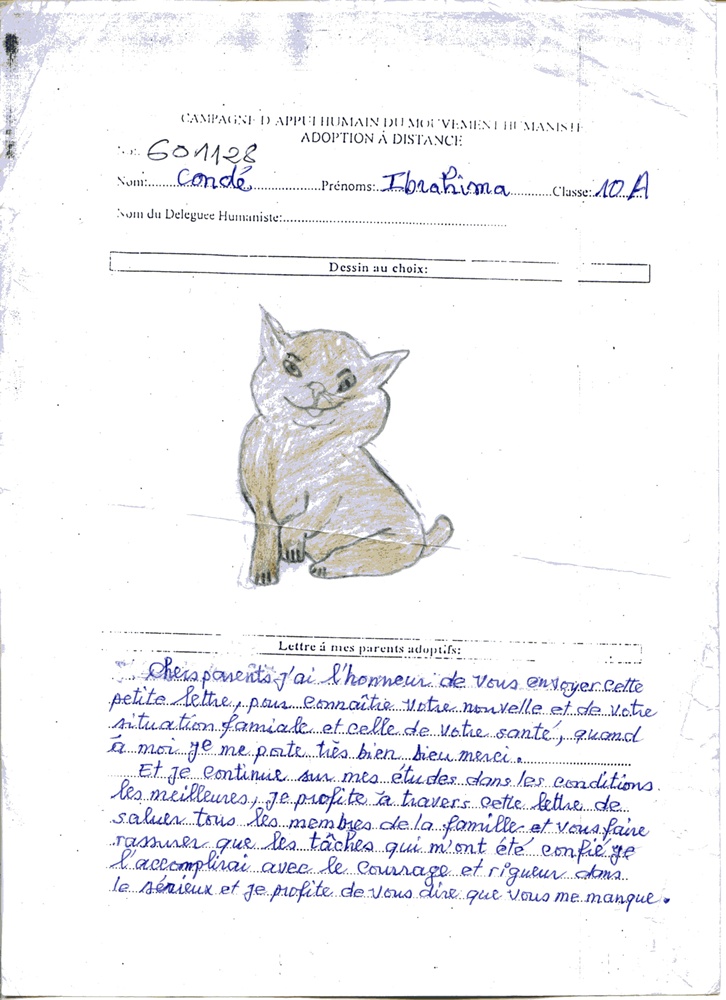 CAMPAGNE D'APPUI HUMAIN DU MOUVEMENT HUMANISTE
ADOPTION À DISTANCE
601128
Nom: Condé Prénoms: Ibrahima Classe: 10 A
Nom du Deleguee Humaniste:
Dessin au choix:
Lettre á mes parents adoptifs:
Chers parents j'ai l'honneur de vous envoyer cette
petite lettre, pour connaître votre nouvelle et de votre
situation famiale et celle de votre santé, quand
à moi je me porte très bien, Dieu merci.
Et je continue sur mes études dans les conditions
les meilleures, je profite à travers cette lettre de
saluer tous les membres de la famille et vous faire
rassurer que les tâches qui m'ont été confié je
l'accomplirai avec le courrage et rigueur dans
le sérieux et je profite de vous dire que vous me manque.